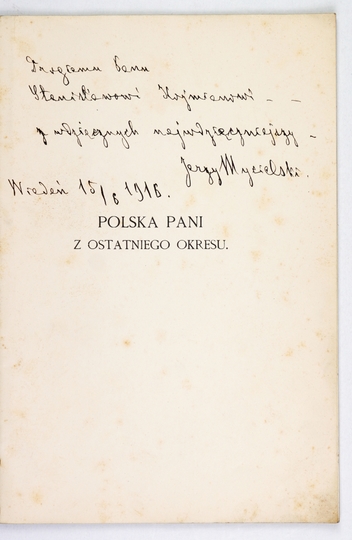 Drogiemu Panu
Stanisławowi Koźmianowi - -
z wdzięcznych najwdzięczniejszy -
Jerzy Mycielski.
Wiedeń 15/6 1916.
POLSKA PANI
Z OSTATNIEGO OKRESU.